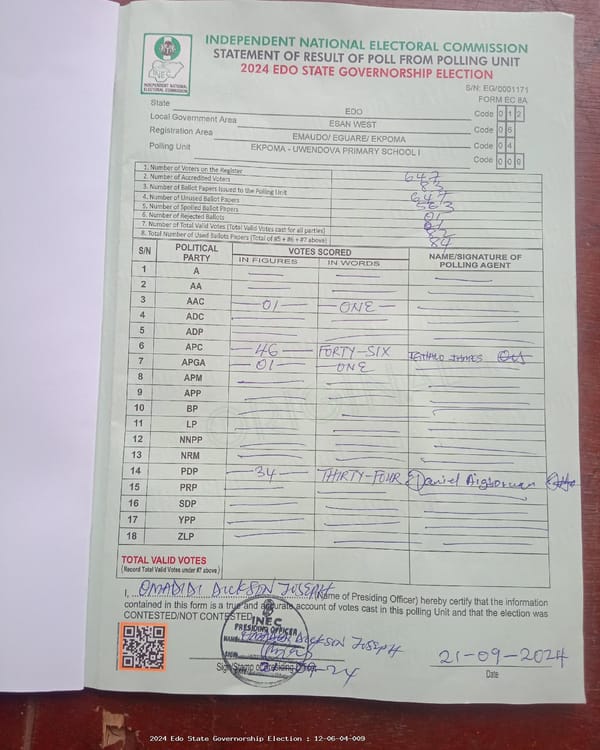 INDEPENDENT NATIONAL ELECTORAL COMMISSION
STATEMENT OF RESULT OF POLL FROM POLLING UNIT
2024 EDO STATE GOVERNORSHIP ELECTION
INEC
INDEPENDENT NATIONAL ELECTORAL COMMISSION
S/N: EG/0001171
FORM EC 8A
State EDO Code 0 1 2
Local Government Area ESAN WEST Code 0 6
Registration Area EMAUDO/ EGUARE/ EKPOMA Code 0 4
Polling Unit EKPOMA - UWENDOVA PRIMARY SCHOOL I Code 0 0 9
1. Number of Voters on the Register 647
2. Number of Accredited Voters
3. Number of Ballot Papers Issued to the Polling Unit 647
4. Number of Unused Ballot Papers 563
5. Number of Spoiled Ballot Papers 01
6. Number of Rejected Ballots
7. Number of Total Valid Votes (Total Valid Votes cast for all parties) 82
8. Total Number of Used Ballots Papers (Total of #5 + #6 + #7 above) 84
S/N POLITICAL PARTY VOTES SCORED NAME/SIGNATURE OF POLLING AGENT
IN FIGURES IN WORDS
1 A
2 AA
3 AAC 01 ONE
4 ADC
5 ADP
6 APC 46 FORTY-SIX
7 APGA 01 ONE
8 APM
9 APP
10 BP
11 LP
12 NNPP
13 NRM
14 PDP 34 THIRTY-FOUR Daniel
15 PRP
16 SDP
17 YPP
18 ZLP
TOTAL VALID VOTES
(Record Total Valid Votes under #7 above)
I, OMADIDI DICKSON JOSEPH (Name of Presiding Officer) hereby certify that the information
contained in this form is a true and accurate account of votes cast in this polling Unit and that the election was
CONTESTED/NOT CONTESTED
INEC
PRESIDING OFFICER
NAME: DICKSON JOSEPH
21-09-2024
Date
2024 Edo State Governorship Election : 12-06-04-009